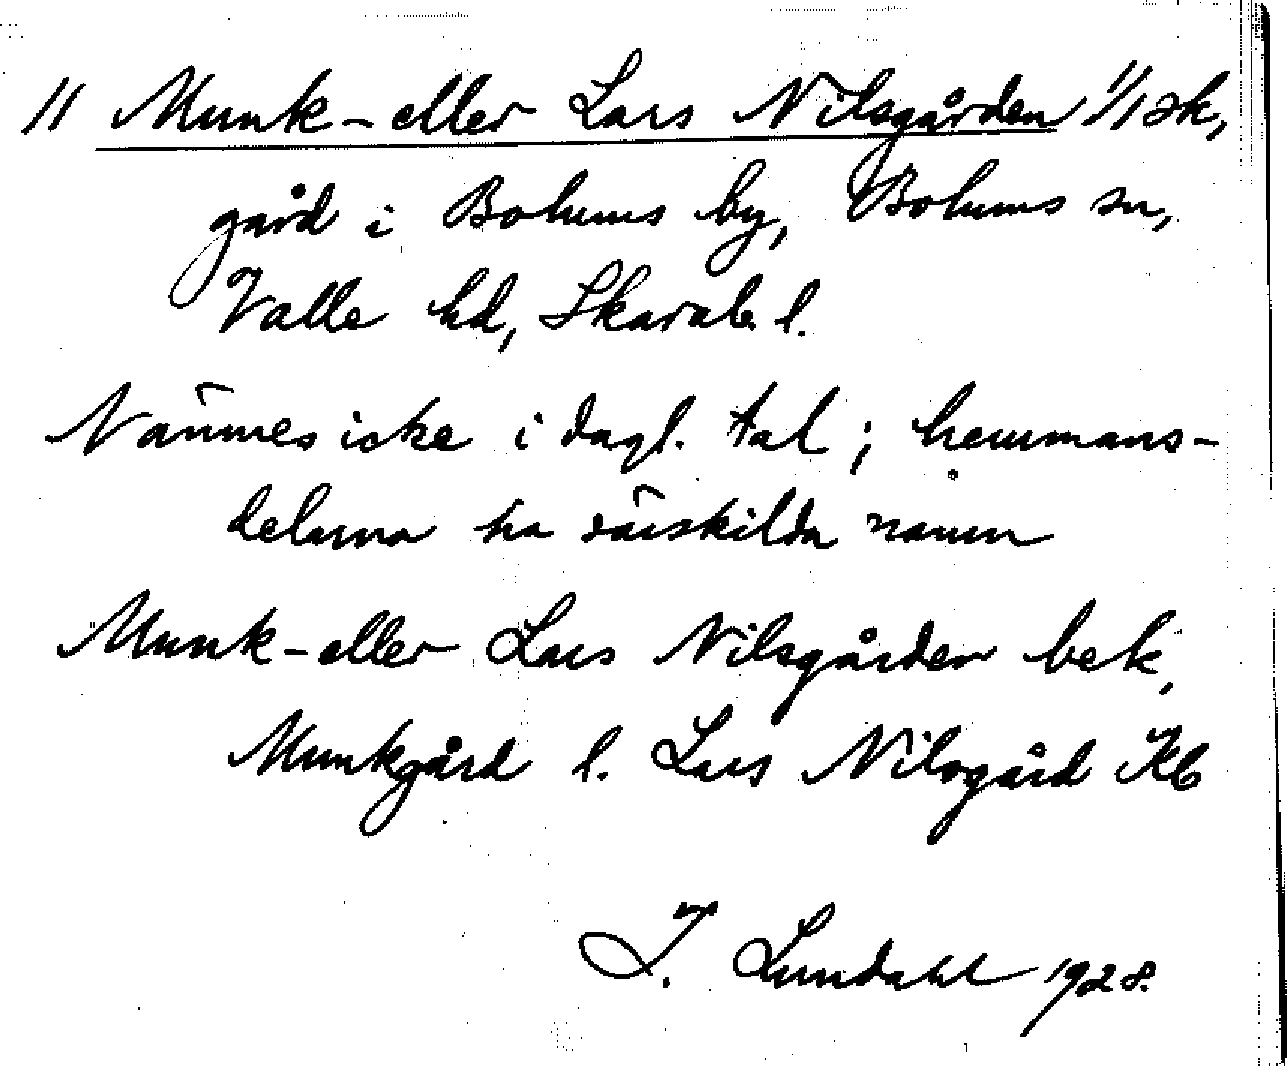 11 Munk- eller Lars Nilsgården 1/1 sk,
gård i Bolums by, Bolums sn,
Valle hd, Skarab. l.
Nämnes icke i dagl. tal; hemmans-
delarna ha särskilda namn
Munk- eller Lars Nilsgården bek,
Munkgård l. Lars Nilsgård Kb
I. Lundahl 1928.